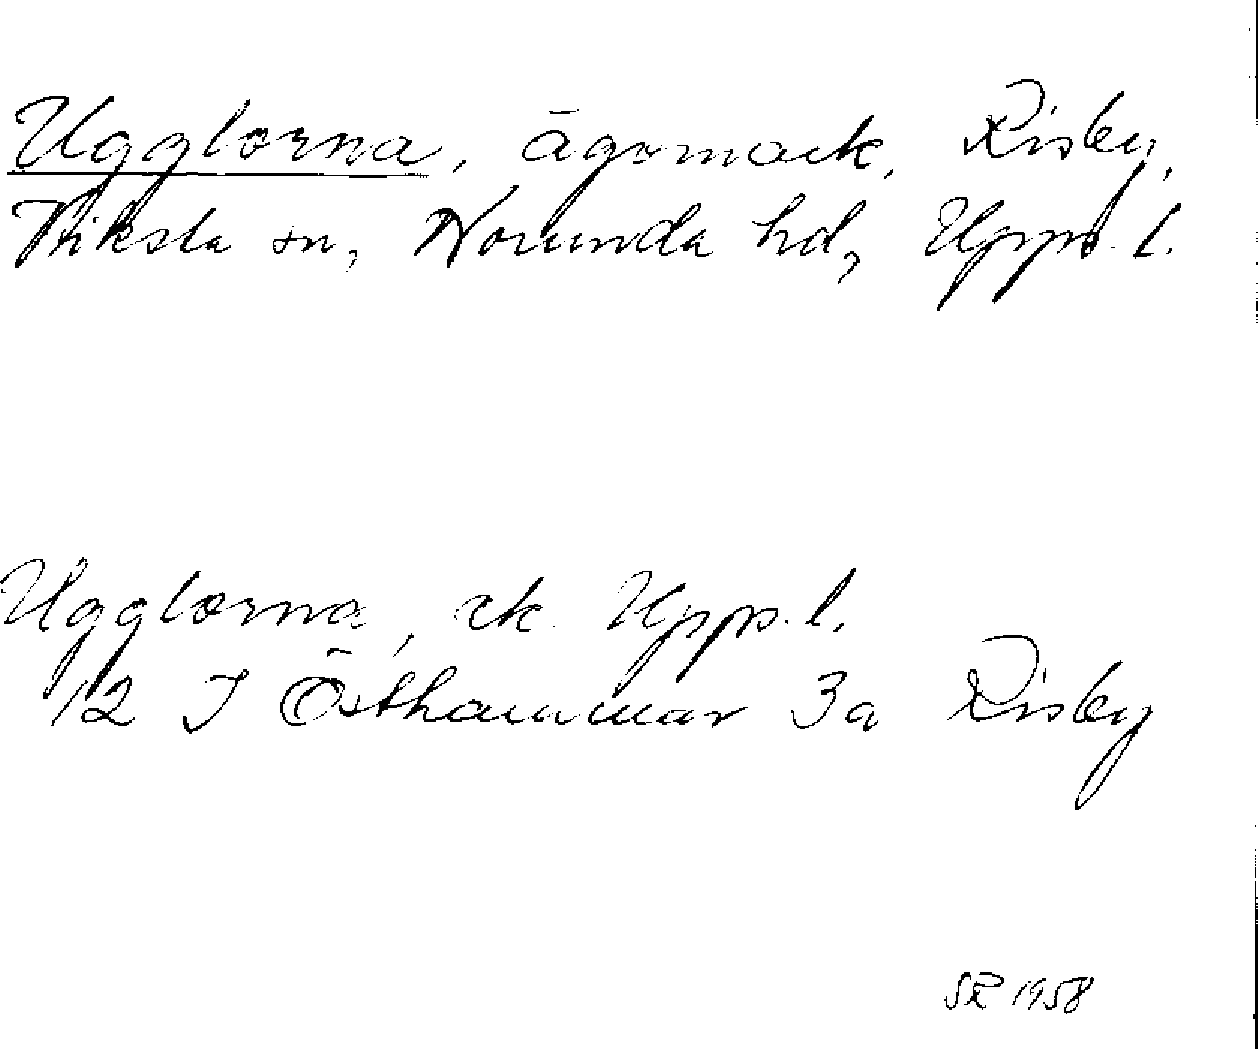 Ugglorna, ägomark, Risby,
Viksta sn, Norunda hd, Upps. l.
Ugglorna, ek. Upps. l.
12 I Östhammar 3a Risby
SR 1958